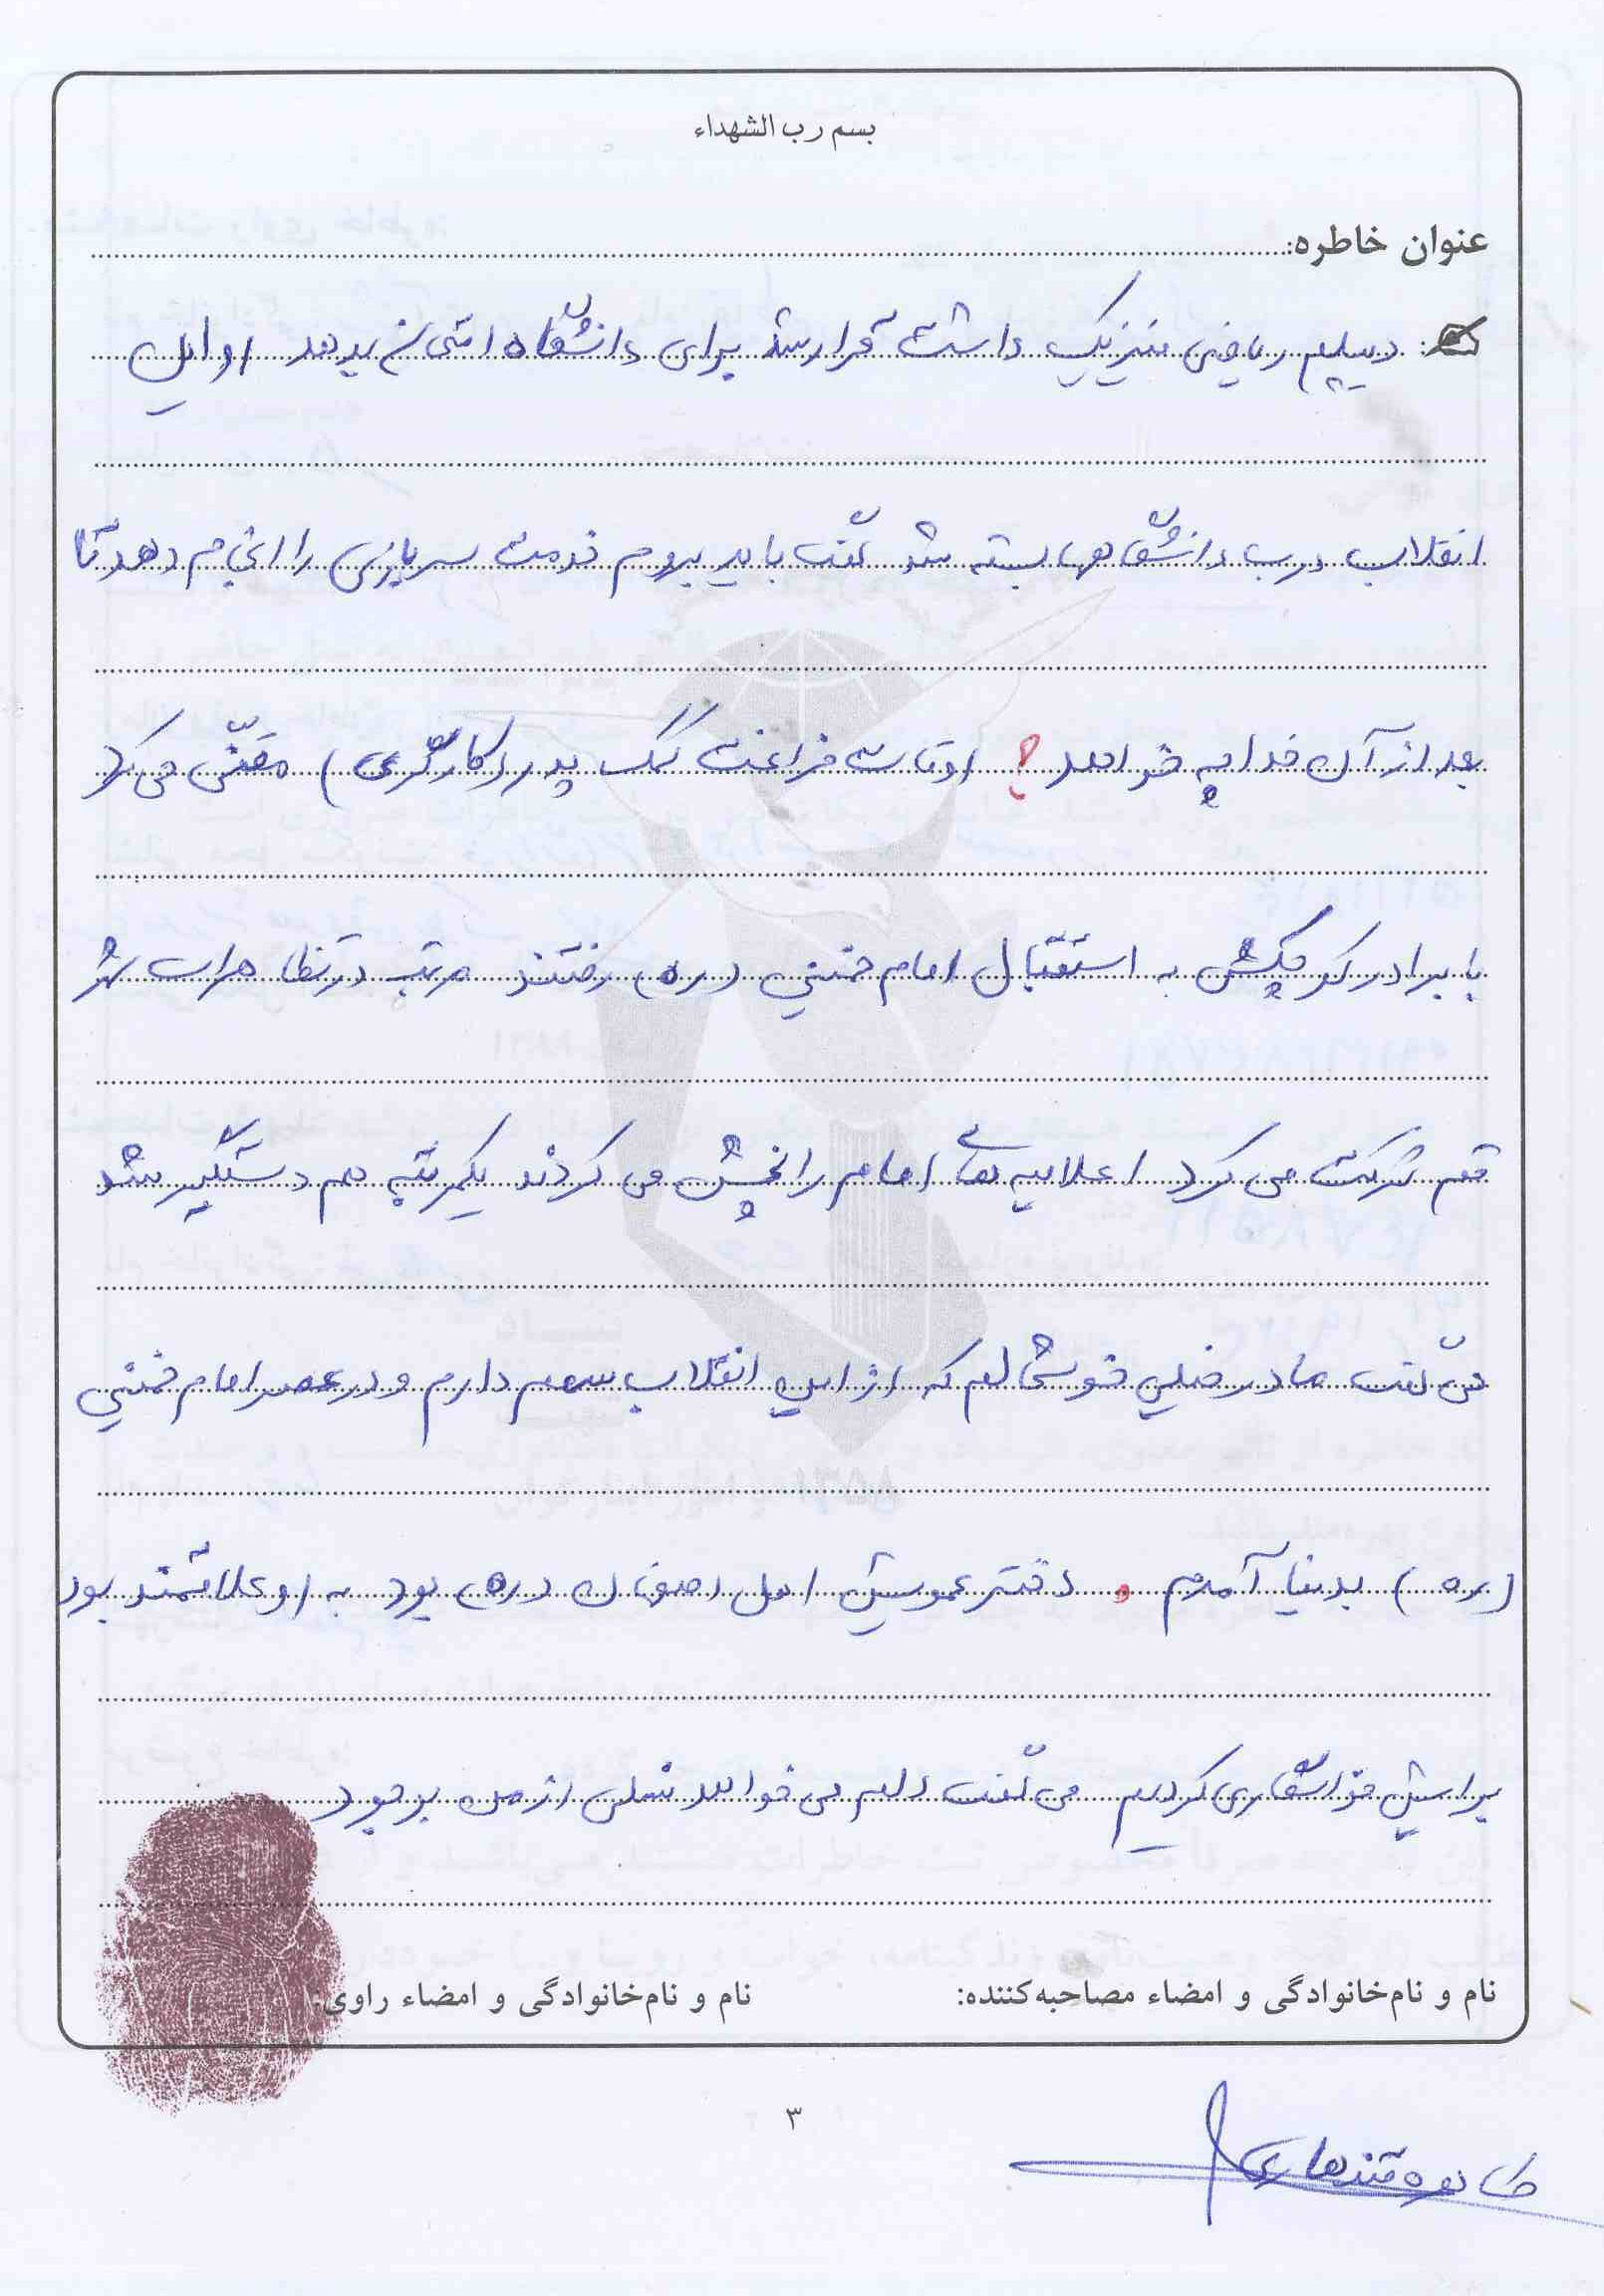 بسم رب الشهداء
عنوان خاطره:
دیپلم ریاضی فیزیک داشت قرار شد برای دانشگاه امتحان بدهد اوایل
انقلاب درب دانشگاهها بسته شد گفت باید بروم خدمت سربازی را انجام دهد تا
بعد از آن خدا چه خواهد ؟ اوقات فراغت کمک پدر (کارگری) مقنّی می کرد
با برادر کوچکش به استقبال امام خمینی (ره) رفتند مرتب در تظاهرات شهر
قم شرکت می کرد اعلامیه های امام را پخش می کردند یکمرتبه هم دستگیر شد
می گفت مادر خیلی خوشحالم که از این انقلاب سهم دارم و در عصر امام خمینی
(ره) بدنیا آمدم . دختر عمویش اهل اصفهان بود به او علاقمند بود
برایش خواستگاری کردیم می گفت دلم می خواهد نسلی از من بوجود
نام و نام‌خانوادگی و امضاء مصاحبه‌کننده:
نام و نام‌خانوادگی و امضاء راوی:
۳
طاهره قندهاری